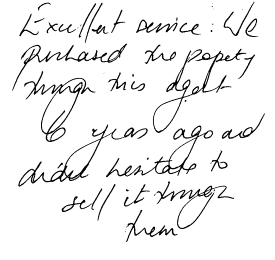 Excellent service. We
purchased the property
through this agent
6 years ago and
didn't hesitate to
sell it through
them